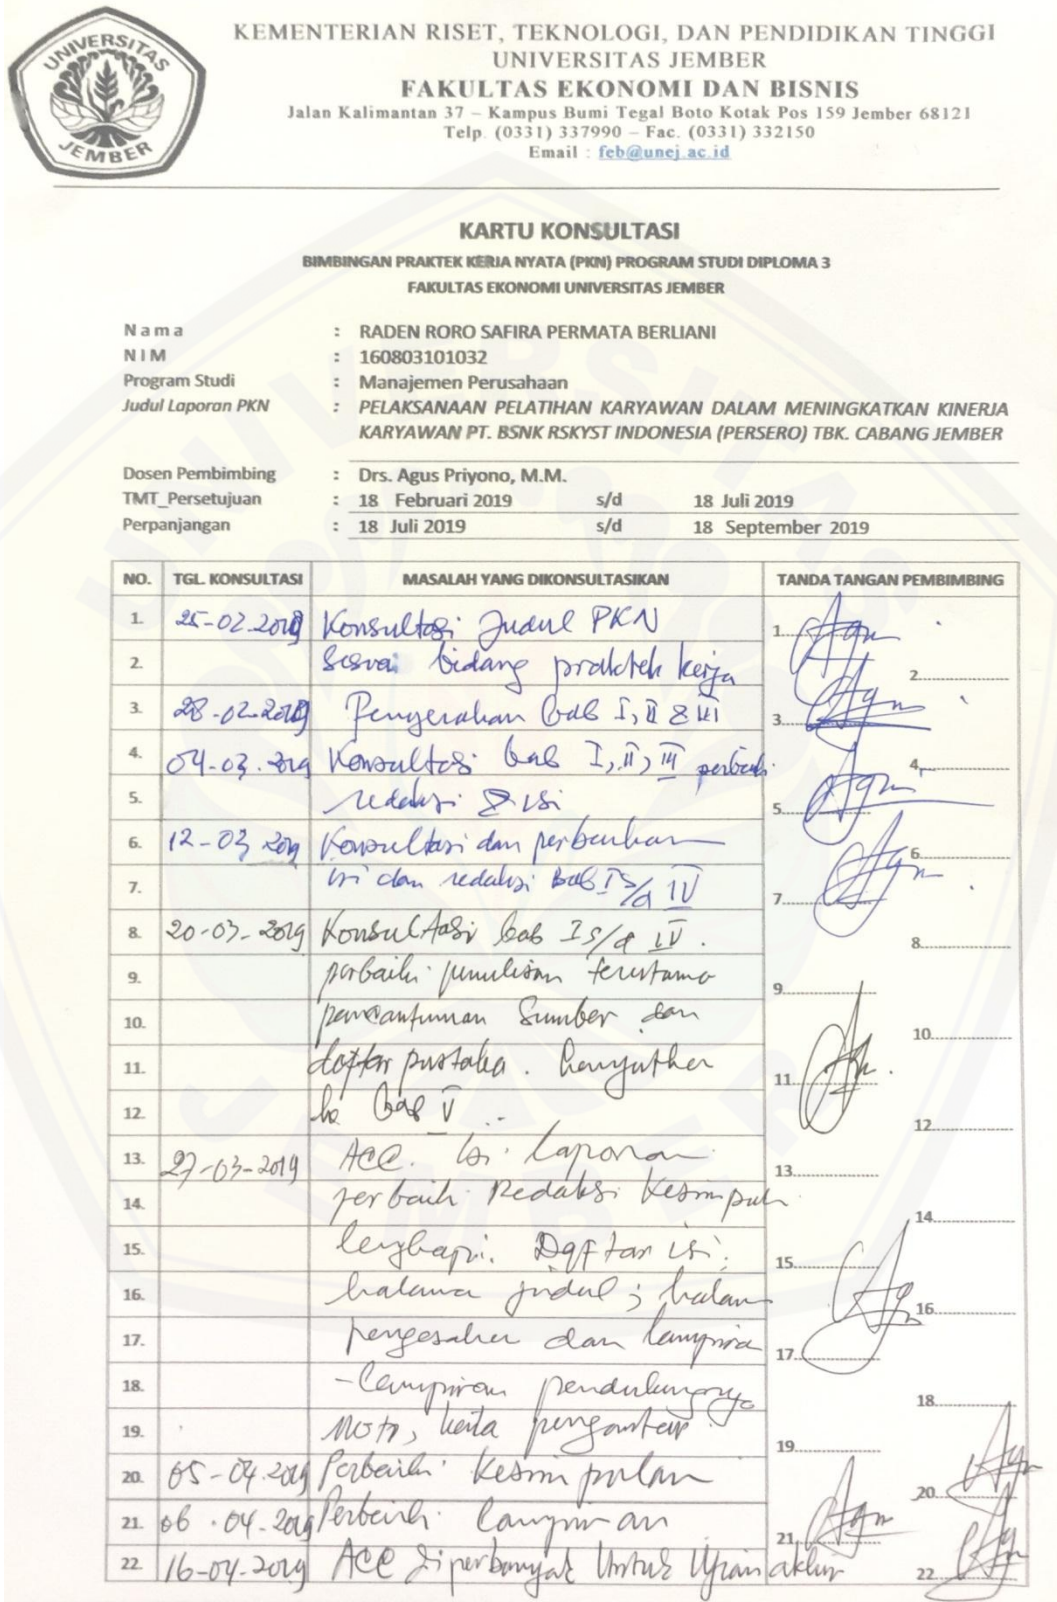 UNIVERSITAS
JEMBER
KEMENTERIAN RISET, TEKNOLOGI, DAN PENDIDIKAN TINGGI
UNIVERSITAS JEMBER
FAKULTAS EKONOMI DAN BISNIS
Jalan Kalimantan 37 – Kampus Bumi Tegal Boto Kotak Pos 159 Jember 68121
Telp. (0331) 337990 – Fac. (0331) 332150
Email : feb@unej.ac.id
KARTU KONSULTASI
BIMBINGAN PRAKTEK KERJA NYATA (PKN) PROGRAM STUDI DIPLOMA 3
FAKULTAS EKONOMI UNIVERSITAS JEMBER
Nama : RADEN RORO SAFIRA PERMATA BERLIANI
NIM : 160803101032
Program Studi : Manajemen Perusahaan
Judul Laporan PKN : PELAKSANAAN PELATIHAN KARYAWAN DALAM MENINGKATKAN KINERJA
KARYAWAN PT. BSNK RSKYST INDONESIA (PERSERO) TBK. CABANG JEMBER
Dosen Pembimbing : Drs. Agus Priyono, M.M.
TMT_Persetujuan : 18 Februari 2019 s/d 18 Juli 2019
Perpanjangan : 18 Juli 2019 s/d 18 September 2019
NO. TGL. KONSULTASI MASALAH YANG DIKONSULTASIKAN TANDA TANGAN PEMBIMBING
1. 25-02-2019 Konsultasi Judul PKN 1.
2. Sesuai bidang praktek kerja 2.
3. 28-02-2019 Penyerahan bab I, II & III 3.
4. 04-03-2019 Konsultasi bab I, II, III perbaiki 4.
5. redaksi & isi 5.
6. 12-03-2019 Konsultasi dan perbaikan 6.
7. isi dan redaksi Bab I s/d IV 7.
8. 20-03-2019 Konsultasi bab I s/d IV. 8.
9. perbaiki penulisan terutama 9.
10. pencantuman Sumber dan 10.
11. daftar pustaka. Lanjutkan 11.
12. ke bab V 12.
13. 27-03-2019 ACC. Isi Laporan 13.
14. perbaiki Redaksi Kesimpulan 14.
15. lengkapi. Daftar isi. 15.
16. halaman judul; halaman 16.
17. pengesahan dan lampiran 17.
18. -Lampiran pendukungnya 18.
19. Moto, kata pengantar 19.
20. 05-04-2019 Perbaiki Kesimpulan 20.
21. 06-04-2019 Perbaiki Lampiran 21.
22. 16-04-2019 ACC diperbanyak Untuk Ujian akhir 22.